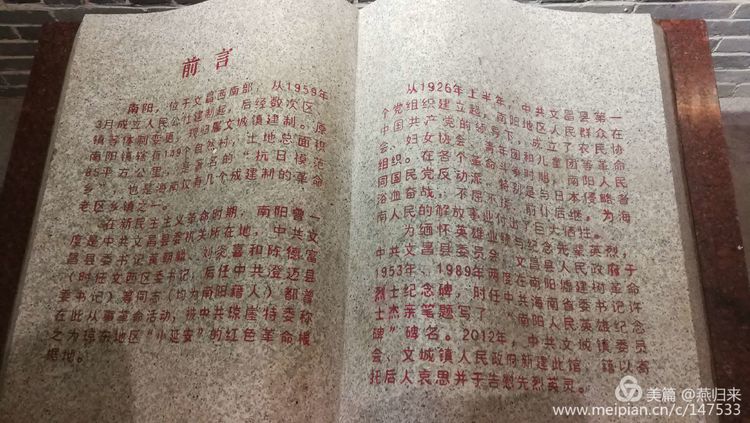 前言
南阳，位于文昌西南部，从1959年
3月成立人民公社建制起，后经数次区
镇等体制变更，现归属文城镇建制。原
南阳镇辖有139个自然村，土地总面积
85平方公里，是著名的“抗日模范
乡”，也是海南仅有几个成建制的革命
老区乡镇之一。
在新民主主义革命时期，南阳曾一
度是中共文昌县委机关所在地，中共文
昌县委书记黄朝麟、刘炎喜和陈德富
（时任文西区委书记，后任中共澄迈县
委书记）等同志（均为南阳籍人）都曾
在此从事革命活动，被中共琼崖特委称
之为琼东地区“小延安”的红色革命根
据地。
从1926年上半年，中共文昌县第一
个党组织建立起，南阳地区人民群众在
中国共产党的领导下，成立了农民协
会、妇女协会、青年团和儿童团等革命
组织。在各个革命斗争时期，南阳人民
同国民党反动派，特别是与日本侵略者
浴血奋战，不屈不挠，前仆后继。为海
南人民的解放事业付出了巨大牺牲。
为缅怀英雄业绩与纪念先辈英烈，
中共文昌县委员会、文昌县人民政府于
1953年、1989年两度在南阳墟建树革命
烈士纪念碑，时任中共海南省委书记许
士杰亲笔题写了“南阳人民英雄纪念
碑”碑名。2012年，中共文城镇委员
会、文城镇人民政府新建此馆，藉以寄
托后人哀思并于告慰先烈英灵。
美篇 @燕归来
www.meipian.cn/c/147533